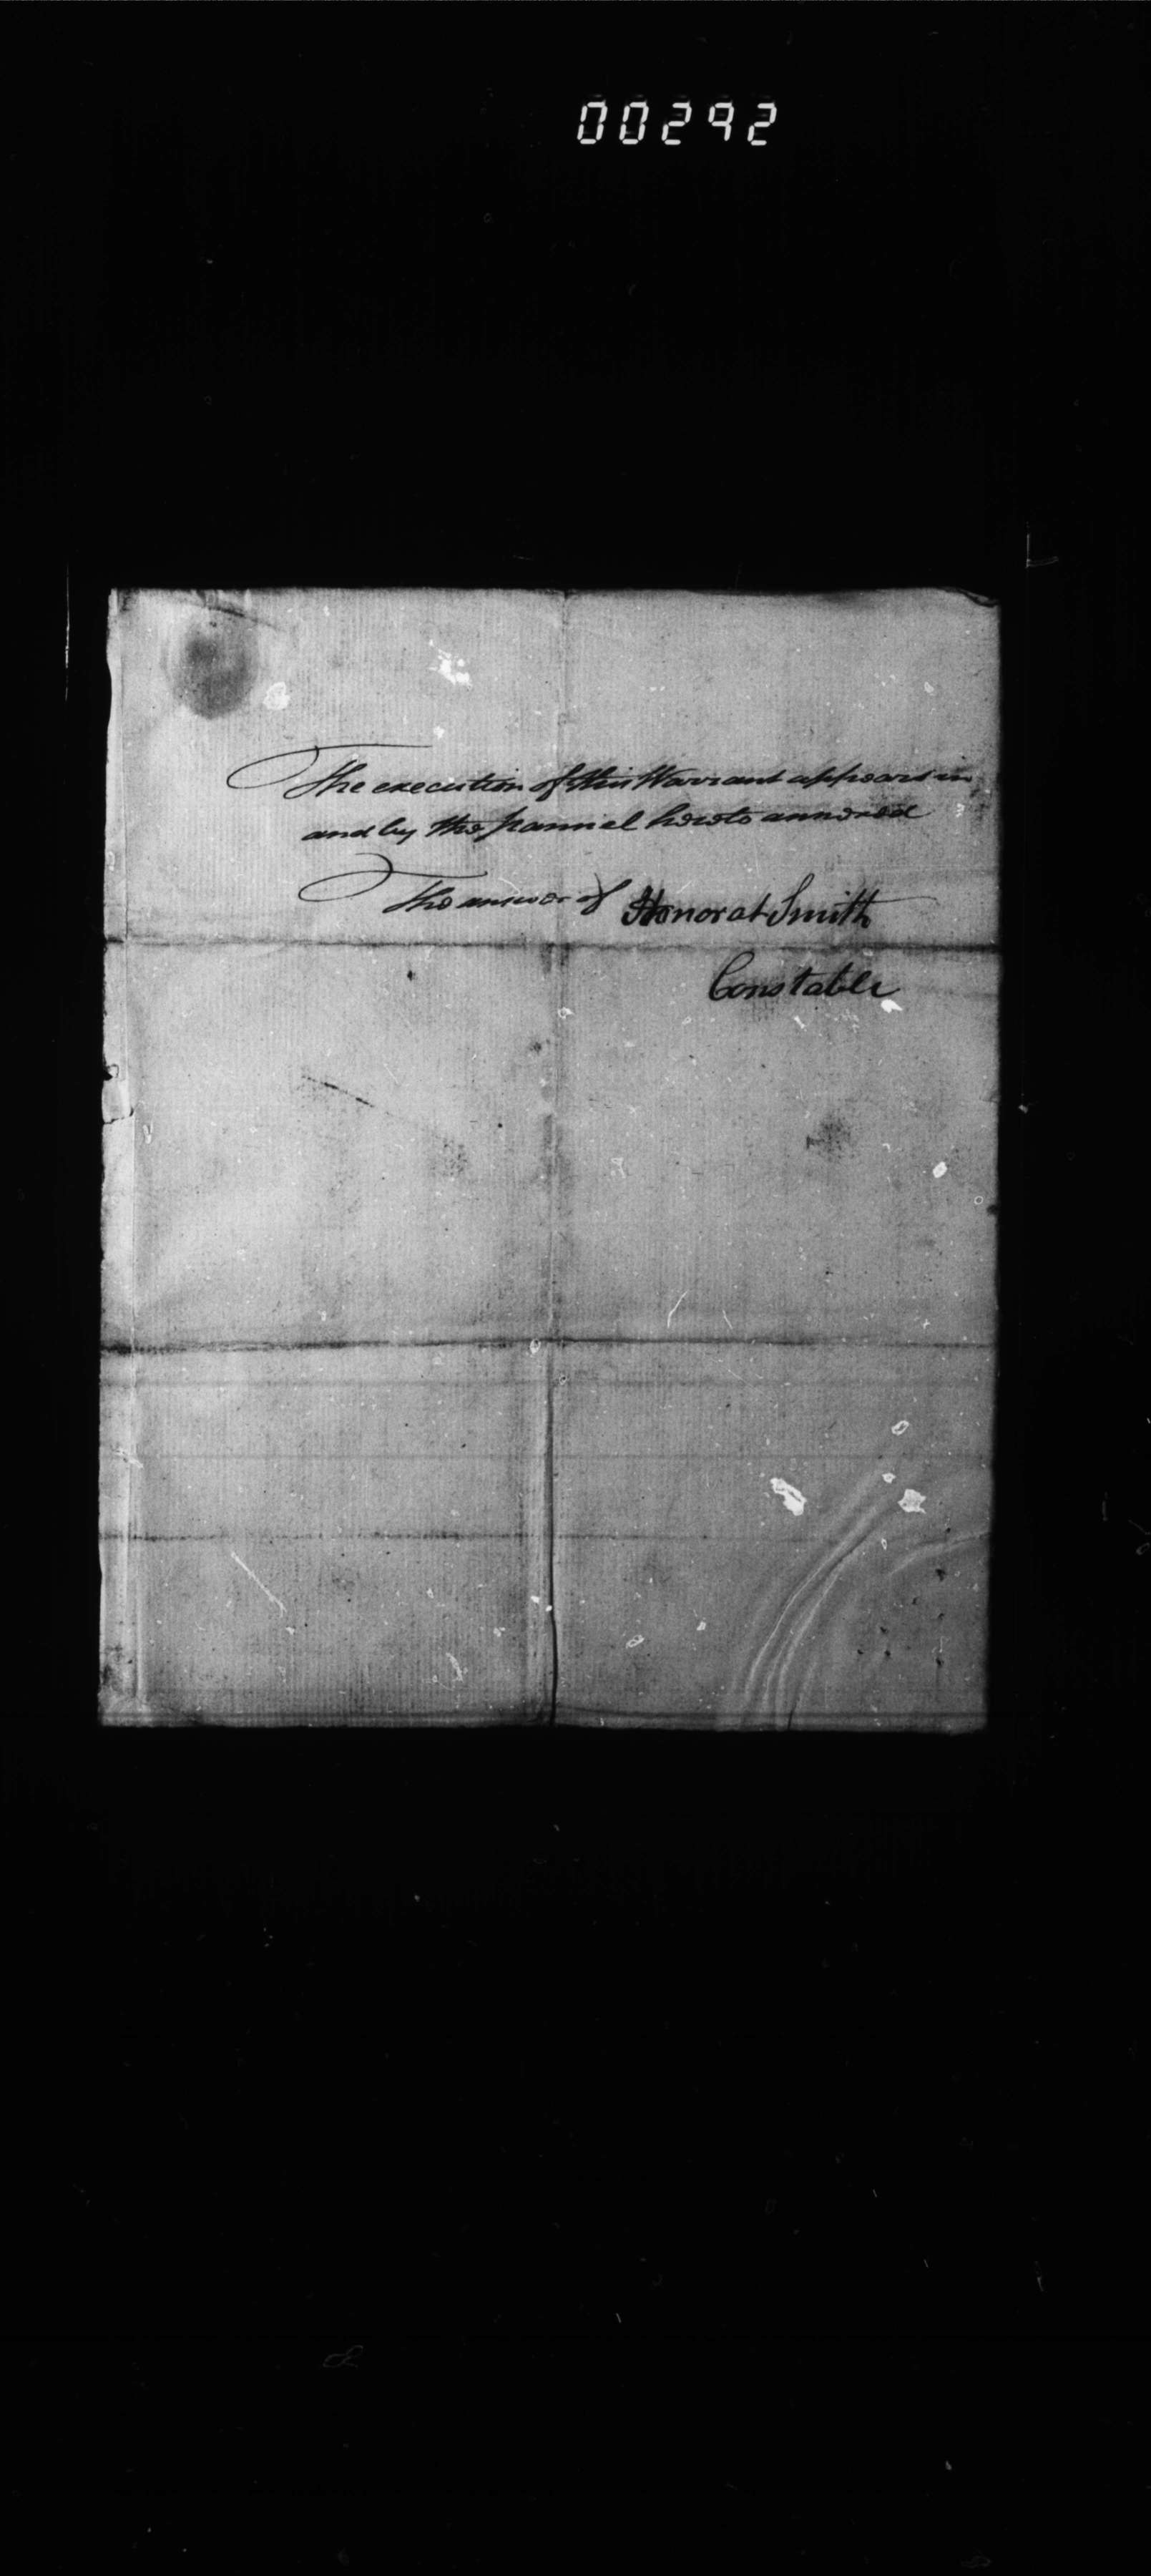 00292
The execution of this Warrant appears in
and by the pannel hereto annexed
The answer of Honorat Smith
Constable